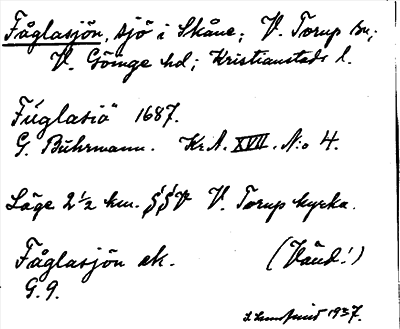 Fåglasjön, sjö i Skåne; V. Torup sn;
V. Göinge hd; Kristianstads l.
Fúglasiö 1687.
G. Buhrmann. Kr.A. XVII. N:o 4.
Läge 2½ km. S§V V. Torup kyrka.
Fåglasjön ek. (Vänd!)
G.9.
1937.